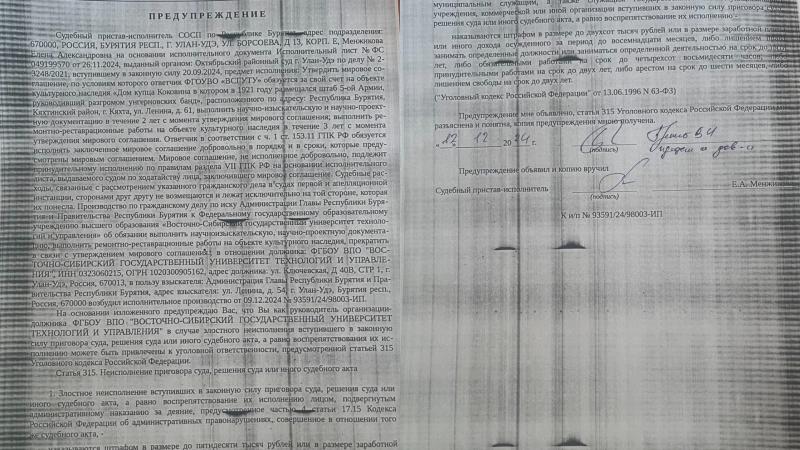 ПРЕДУПРЕЖДЕНИЕ
Судебный пристав-исполнитель СОСП по республике Бурятия, адрес подразделения:
670000, РОССИЯ, БУРЯТИЯ РЕСП., Г. УЛАН-УДЭ, УЛ. БОРСОЕВА, Д 13, КОРП. Е, Менжикова
Елена Александровна на основании исполнительного документа Исполнительный лист № ФС
049199570 от 26.11.2024, выданный органом: Октябрьский районный суд г. Улан-Удэ по делу № 2-
3248/2021, вступившему в законную силу 20.09.2024, предмет исполнения: Утвердить мировое со-
глашение, по условиям которого ответчик ФГОУВО «ВСГУТУ» обязуется за свой счет на объекте
культурного наследия «Дом купца Коковина в котором в 1921 году размещался штаб 5-ой Армии,
руководивший разгромом унгерновских банд», расположенного по адресу: Республика Бурятия,
Кяхтинский район, г. Кяхта, ул. Ленина, д. 61, выполнить научно-исследовательскую и научно-проект-
ную документацию в течение 2 лет с момента утверждения мирового соглашения; выполнить ре-
монтно-реставрационные работы на объекте культурного наследия в течение 3 лет с момента
утверждения мирового соглашения. Ответчик в соответствии с ч. 1 ст. 153.11 ГПК РФ обязуется
исполнять заключенное мировое соглашение добровольно в порядке и в сроки, которые преду-
смотрены мировым соглашением. Мировое соглашение, не исполненное добровольно, подлежит
принудительному исполнению по правилам раздела VII ГПК РФ на основании исполнительного
листа, выдаваемого судом по ходатайству лица, заключившего мировое соглашение. Судебные рас-
ходы, связанные с рассмотрением указанного гражданского дела в судах первой и апелляционной
инстанции, сторонами друг другу не возмещаются и лежат исключительно на той стороне, которая
их понесла. Производство по гражданскому делу по иску Администрации Главы Республики Буря-
тия и Правительства Республики Бурятия к Федеральному государственному образовательному
учреждению высшего образования «Восточно-Сибирский государственный университет техноло-
гий и управления» об обязании выполнить научноизыскательскую, научно-проектную документа-
цию, выполнить ремонтно-реставрационные работы на объекте культурного наследия, прекратить
в связи с утверждением мирового соглашения, в отношении должника: ФГБОУ ВПО "ВОС-
ТОЧНО-СИБИРСКИЙ ГОСУДАРСТВЕННЫЙ УНИВЕРСИТЕТ ТЕХНОЛОГИЙ И УПРАВЛЕ-
НИЯ", ИНН 0323060215, ОГРН 1020300905162, адрес должника: ул. Ключевская, Д 40В, СТР 1, г.
Улан-Удэ, Россия, 670013, в пользу взыскателя: Администрация Главы Республики Бурятии и Пра-
вительства Республики Бурятии, адрес взыскателя: ул. Ленина, д. 54, г. Улан-Удэ, Бурятия респ.,
Россия, 670000 возбудил исполнительное производство от 09.12.2024 № 93591/24/98003-ИП.
На основании изложенного предупреждаю Вас, что Вы как руководитель организации-
должника ФГБОУ ВПО "ВОСТОЧНО-СИБИРСКИЙ ГОСУДАРСТВЕННЫЙ УНИВЕРСИТЕТ
ТЕХНОЛОГИЙ И УПРАВЛЕНИЯ" в случае злостного неисполнения вступившего в законную
силу приговора суда, решения суда или иного судебного акта, а равно воспрепятствования их ис-
полнению можете быть привлечены к уголовной ответственности, предусмотренной статьей 315
Уголовного кодекса Российской Федерации.
Статья 315. Неисполнение приговора суда, решения суда или иного судебного акта
1. Злостное неисполнение вступивших в законную силу приговора суда, решения суда или
иного судебного акта, а равно воспрепятствование их исполнению лицом, подвергнутым
административному наказанию за деяние, предусмотренное частью 4 статьи 17.15 Кодекса
Российской Федерации об административных правонарушениях, совершенное в отношении того
же судебного акта, -
наказываются штрафом в размере до пятидесяти тысяч рублей или в размере заработной
муниципальным служащим, а также служащим
учреждения, коммерческой или иной организации вступивших в законную силу приговора суда,
решения суда или иного судебного акта, а равно воспрепятствование их исполнению -
наказываются штрафом в размере до двухсот тысяч рублей или в размере заработной платы
или иного дохода осужденного за период до восемнадцати месяцев, либо лишением права
занимать определенные должности или заниматься определенной деятельностью на срок до пяти
лет, либо обязательными работами на срок до четырехсот восьмидесяти часов, либо
принудительными работами на срок до двух лет, либо арестом на срок до шести месяцев, либо
лишением свободы на срок до двух лет.
("Уголовный кодекс Российской Федерации" от 13.06.1996 N 63-ФЗ)
Предупреждение мне объявлено, статья 315 Уголовного кодекса Российской Федерации мне
разъяснена и понятна, копия предупреждения мною получена.
„ 12 12 2024 г.
(подпись)
Предупреждение объявил и копию вручил
Судебный пристав-исполнитель
Е.А. Менжикова
(подпись)
К и/п № 93591/24/98003-ИП